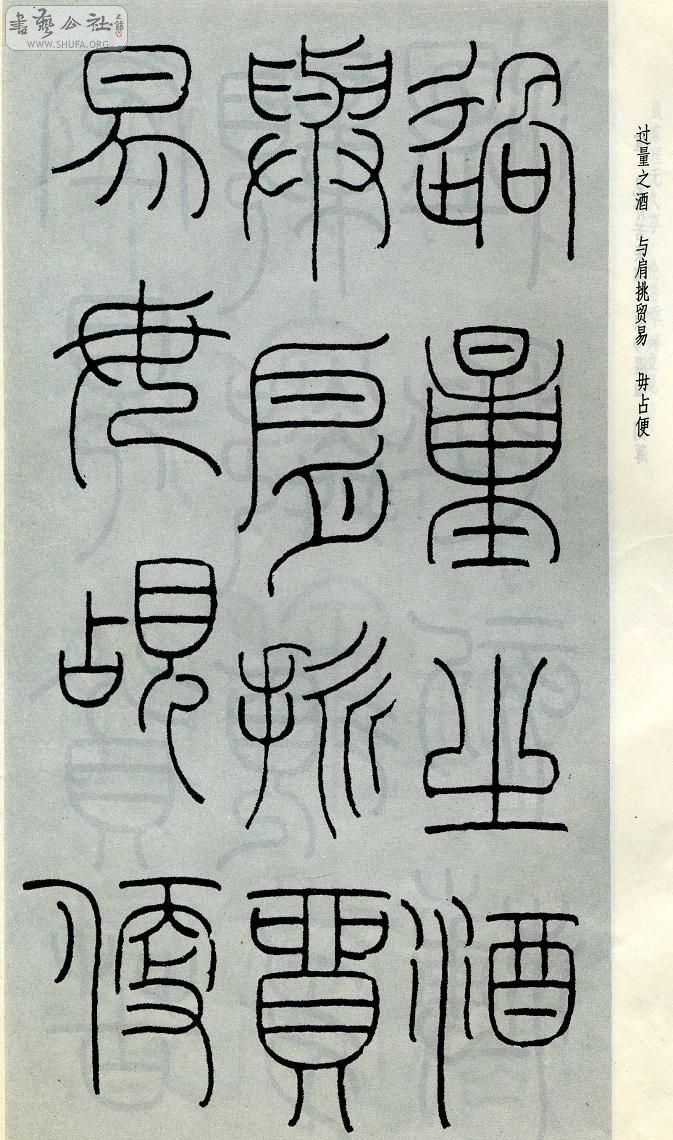 过量之酒 与肩挑贸易 毋占便
過量之酒
與肩挑貿
易毋覘便
書藝公社
WWW.SHUFA.ORG